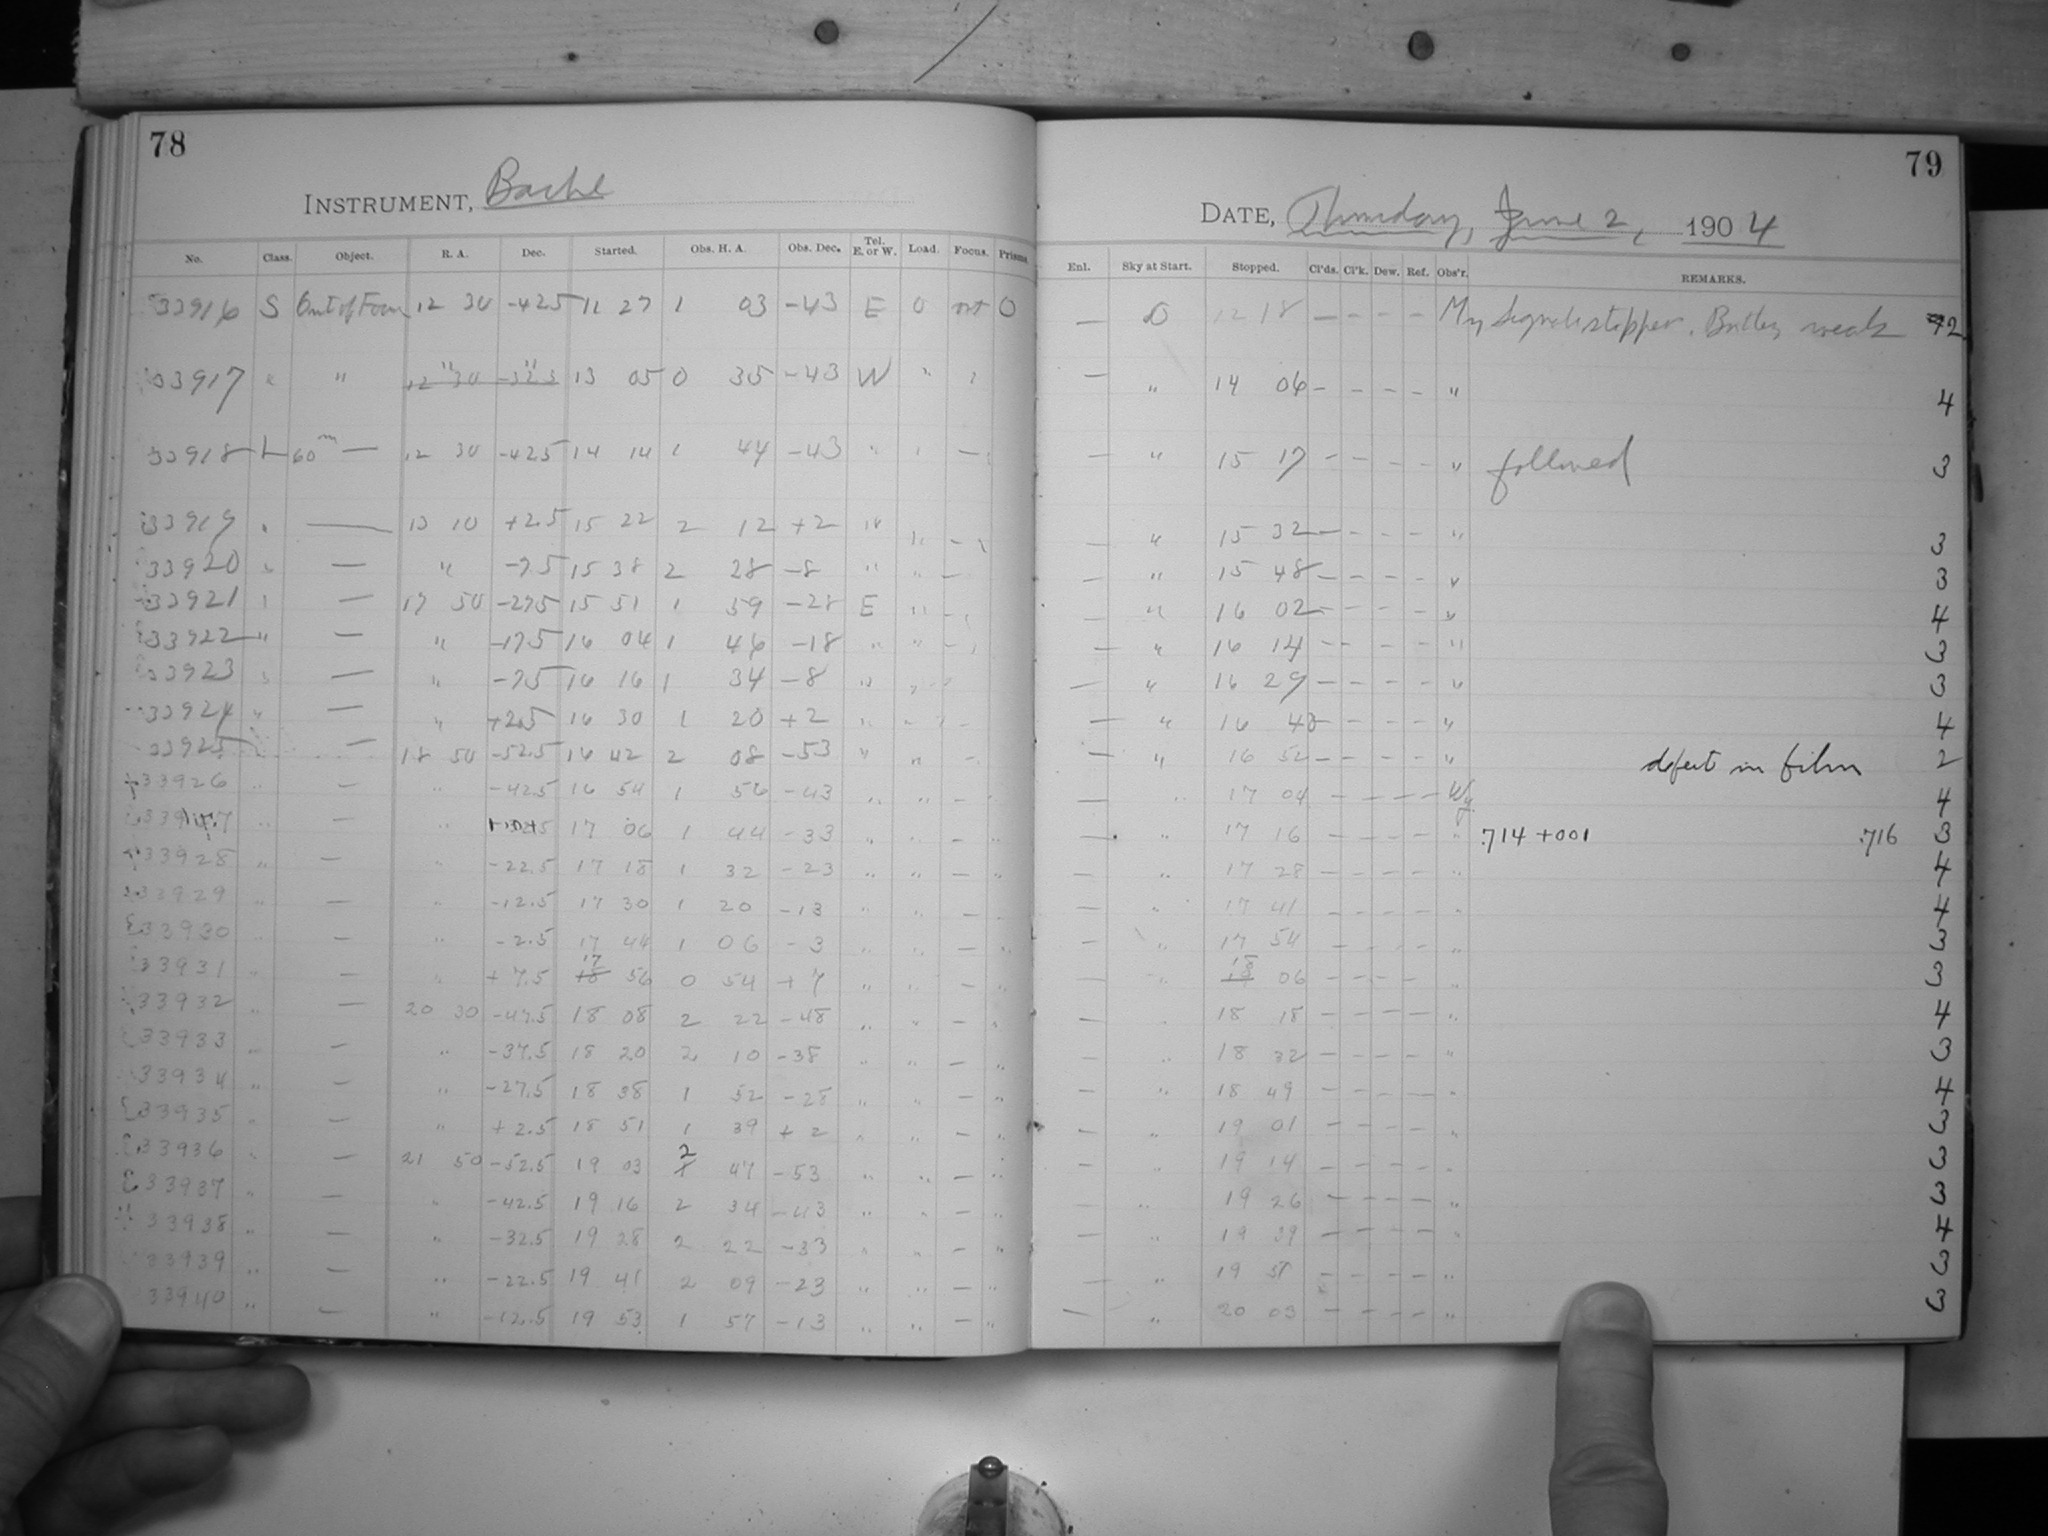 78
INSTRUMENT, Bache
No. Class. Object. R. A. Dec. Started. Obs. H. A. Obs. Dec. Tel. E. or W. Load. Focus. Prisms.
33916 S Out of Focus 12 30 -42.5 11 27 1 03 -43 E 0 out 0
33917 " " 12 30 -32.5 " " 13 05 0 35 -43 W "
33918 L 60m — 12 30 -42.5 14 14 1 44 -43 " —
33919 — 13 10 +2.5 15 22 2 12 +2 " " —
33920 — " -7.5 15 38 2 28 -8 " " —
33921 — 17 50 -27.5 15 51 1 59 -28 E " —
33922 " — " -17.5 16 04 1 46 -18 " " —
33923 — " -7.5 16 16 1 34 -8 " "
33924 " — " +2.5 16 30 1 20 +2 " " —
33925 — 18 50 -52.5 16 42 2 08 -53 " " —
33926 " — " -42.5 16 54 1 56 -43 " " —
33927 " — " 17 06 1 44 -33 " " — "
33928 " — " -22.5 17 18 1 32 -23 " " — "
33929 " — " -12.5 17 30 1 20 -13 " " — "
33930 " — " -2.5 17 44 1 06 -3 " " — "
33931 " — " +7.5 18 17 56 0 54 +7 " " — "
33932 " — 20 30 -47.5 18 08 2 22 -48 " " — "
33933 " — " -37.5 18 20 2 10 -38 " " — "
33934 " — " -27.5 18 38 1 52 -28 " " — "
33935 " — " +2.5 18 51 1 39 +2 " " — "
33936 " — 21 50 -52.5 19 03 2 47 -53 " " — "
33937 " — " -42.5 19 16 2 34 -43 " " — "
33938 " — " -32.5 19 28 2 22 -33 " " — "
33939 " — " -22.5 19 41 2 09 -23 " " — "
33940 " — " -12.5 19 53 1 57 -13 " " — "
79
DATE, Thursday, June 2, 1904
Enl. Sky at Start. Stopped. Cl'ds. Cl'k. Dew. Ref. Obs'r. REMARKS.
— 0 12 18 — — — — My Battery weak 2
— " 14 06 — — — — " 4
— " 15 17 — — — — " followed 3
— " 15 32 — — — — " 3
— " 15 48 — — — — " 3
— " 16 02 — — — — " 4
— " 16 14 — — — — " 3
— " 16 29 — — — — " 3
— " 16 40 — — — — " 4
— " 16 52 — — — — " defect in film 2
— " 17 04 — — — — Wy. 4
— " 17 16 — — — — " .714 +001 .716 3
— " 17 28 — — — — " 4
— " 17 41 — — — — " 4
— " 17 54 — — — — " 3
— " 18 06 — — — — " 3
— " 18 18 — — — — " 4
— " 18 32 — — — — " 3
— " 18 49 — — — — " 4
— " 19 01 — — — — " 3
— " 19 14 — — — — " 3
— " 19 26 — — — — " 3
— " 19 39 — — — — " 4
— " 19 51 — — — — " 3
— " 20 03 — — — — " 3